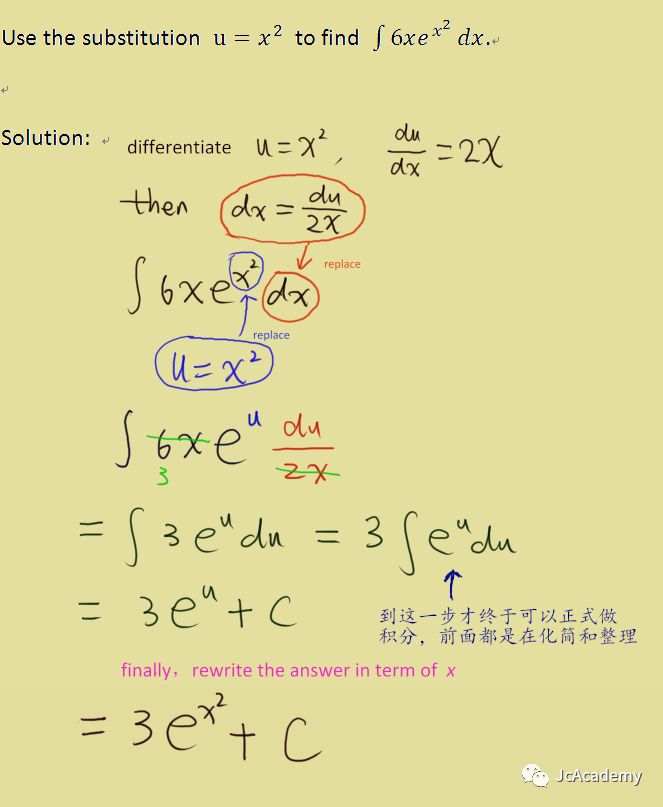 Use the substitution u = x² to find ∫ 6xe^{x²} dx.
Solution: differentiate u = x², du/dx = 2x
then dx = du/2x
replace
∫ 6x e^{x²} dx
replace
u = x²
∫ 6x e^u du/2x
3
= ∫ 3 e^u du = 3 ∫ e^u du
= 3e^u + C
到这一步才终于可以正式做
积分，前面都是在化简和整理
finally，rewrite the answer in term of x
= 3e^{x²} + C
JcAcademy